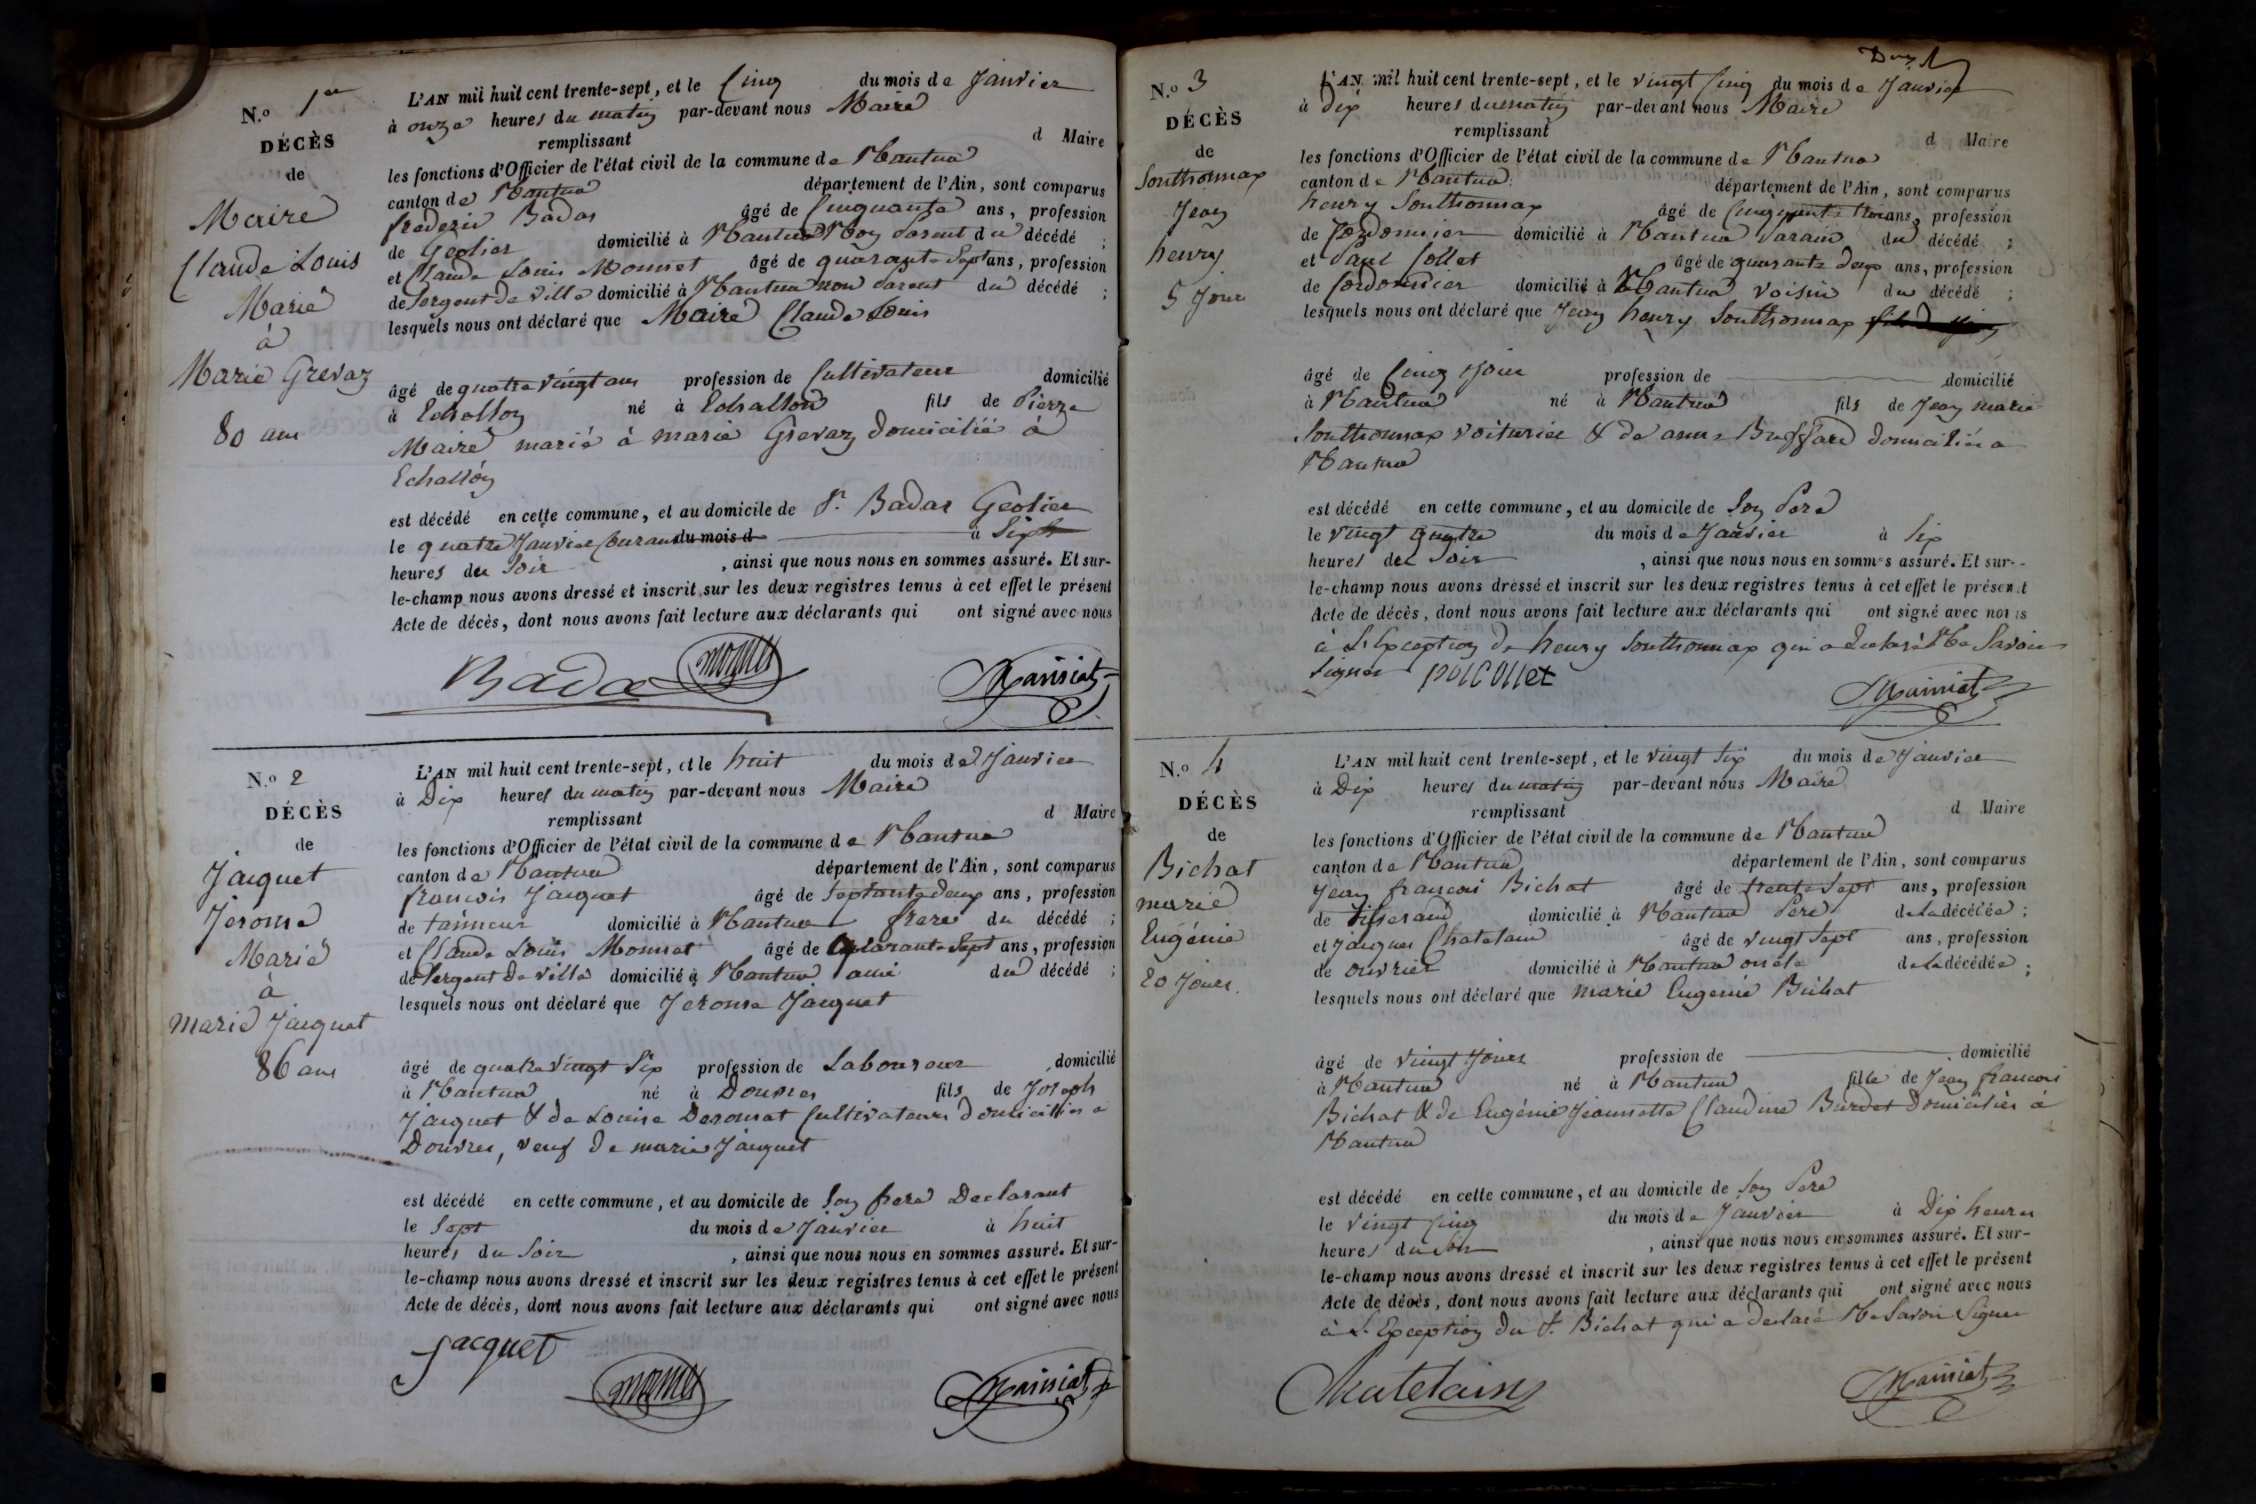 N.o 1er
DÉCÈS
de
Maire
Claude Louis
Marié
à
Marie Grevaz
80 ans
L'AN mil huit cent trente-sept, et le Cinq du mois de Janvier
à onze heures du matin par-devant nous Maire
remplissant d Maire
les fonctions d'Officier de l'état civil de la commune de Nantua
canton de Nantua département de l'Ain, sont comparus
frederic Badar âgé de Cinquante ans, profession
de Geolier domicilié à Nantua Non parent du décédé ;
et Claude Louis Monnet âgé de quarante Sept ans, profession
de Sergent de Ville domicilié à Nantua non parent du décédé ;
lesquels nous ont déclaré que Maire Claude Louis
âgé de quatre vingt ans profession de Cultivateur domicilié
à Echallon né à Echallon fils de Pierre
Maire marié à marie Grevaz domicilié à
Echallon
est décédé en cette commune, et au domicile de Sr. Badar Geolier
le quatre Janvier Courant du mois d à Sept
heures du Soir , ainsi que nous nous en sommes assuré. Et sur-
le-champ nous avons dressé et inscrit sur les deux registres tenus à cet effet le présent
Acte de décès, dont nous avons fait lecture aux déclarants qui ont signé avec nous
Badar Monnet Maissiat
N.o 2
DÉCÈS
de
Jacquet
Jerome
Marié
à
Marie Jacquet
86 ans
L'AN mil huit cent trente-sept, et le huit du mois de Janvier
à Dix heures du matin par-devant nous Maire
remplissant d Maire
les fonctions d'Officier de l'état civil de la commune de Nantua
canton de Nantua département de l'Ain, sont comparus
francois Jacquet âgé de Septante deux ans, profession
de tanneur domicilié à Nantua frere du décédé ;
et Claude Louis Monnet âgé de quarante Sept ans, profession
de Sergent de Ville domicilié à Nantua ami du décédé ;
lesquels nous ont déclaré que Jerome Jacquet
âgé de quatre vingt Six profession de Laboureur domicilié
à Nantua né à Douvres fils de Joseph
Jacquet & de Louise Deromat Cultivateurs domiciliés à
Douvres, veuf de marie Jacquet
est décédé en cette commune, et au domicile de Son frere Declarant
le Sept du mois de Janvier à huit
heures du Soir , ainsi que nous nous en sommes assuré. Et sur-
le-champ nous avons dressé et inscrit sur les deux registres tenus à cet effet le présent
Acte de décès, dont nous avons fait lecture aux déclarants qui ont signé avec nous
Jacquet
Monnet Maissiat
N.o 3
DÉCÈS
de
Southonnax
Jean
henry
5 Jours
L'AN mil huit cent trente-sept, et le vingt Cinq du mois de Janvier
à Dix heures du matin par-devant nous Maire
remplissant d Maire
les fonctions d'Officier de l'état civil de la commune de Nantua
canton de Nantua département de l'Ain, sont comparus
henry Southonnax âgé de Cinquante trois ans, profession
de Cordonnier domicilié à Nantua Parain du décédé ;
et Paul Collet âgé de quarante deux ans, profession
de Cordonnier domicilié à Nantua voisin du décédé ;
lesquels nous ont déclaré que Jean henry Southonnax
âgé de Cinq Jours profession de domicilié
à Nantua né à Nantua fils de Jean marie
Southonnax voiturier & de anne Buffard domiciliés a
Nantua
est décédé en cette commune, et au domicile de Son Pere
le vingt quatre du mois de Janvier à Six
heures du Soir , ainsi que nous nous en sommes assuré. Et sur-
le-champ nous avons dressé et inscrit sur les deux registres tenus à cet effet le présent
Acte de décès, dont nous avons fait lecture aux déclarants qui ont signé avec nous
à L'Exception de henry Southonnax qui a declaré Ne Savoir
Signer polCollet
Maissiat
N.o 4
DÉCÈS
de
Bichat
marie
Eugénie
20 Jours.
L'AN mil huit cent trente-sept, et le vingt Six du mois de Janvier
à Dix heures du matin par-devant nous Maire
remplissant d Maire
les fonctions d'Officier de l'état civil de la commune de Nantua
canton de Nantua département de l'Ain, sont comparus
Jean francois Bichat âgé de trente Sept ans, profession
de Tisserand domicilié à Nantua Pere de La décédée ;
et Jacques Chatelain âgé de vingt Sept ans, profession
de ouvrier domicilié à Nantua oncle de La décédée ;
lesquels nous ont déclaré que marie Eugenie Bichat
âgé de vingt Jours profession de domicilié
à Nantua né à Nantua fille de Jean francois
Bichat & de Eugénie Jeannette Claudine Burdet Domiciliés à
Nantua
est décédé en cette commune, et au domicile de Son Pere
le vingt Cinq du mois de Janvier à Dix heures
heures du Soir , ainsi que nous nous en sommes assuré. Et sur-
le-champ nous avons dressé et inscrit sur les deux registres tenus à cet effet le présent
Acte de décès, dont nous avons fait lecture aux déclarants qui ont signé avec nous
à L'Exception du Sr. Bichat qui a declaré Ne Savoir Signer
Chatelain Maissiat